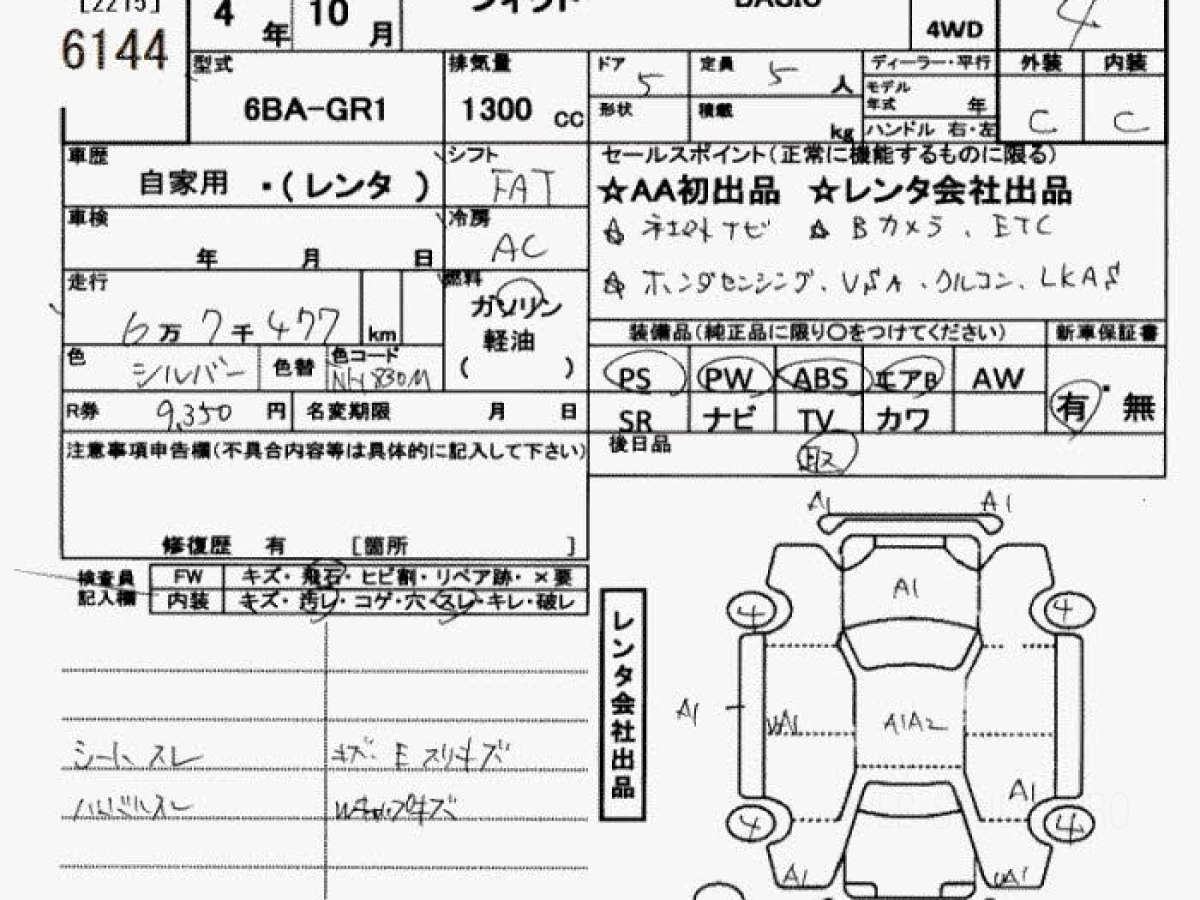 [2215]
6144
4 年 10 月
フィット
BASIC
4WD
4
型式
6BA-GR1
排気量
1300 cc
ドア
5
定員
5 人
形状
積載
kg
ディーラー・平行
モデル
年式 年
ハンドル 右・左
外装 内装
C C
車歴
自家用 ・(レンタ )
シフト
FAT
車検
年 月 日
冷房
AC
走行
6万7千477 km
燃料
ガソリン
軽油
( )
色
シルバー
色替
色コード
NH830M
R券 9,350 円
名変期限 月 日
セールスポイント(正常に機能するものに限る)
☆AA初出品 ☆レンタ会社出品
☆ 社外ナビ ☆ Bカメラ、ETC
☆ ホンダセンシング、VSA、クルコン、LKAS
装備品(純正品に限り〇をつけてください)
新車保証書
PS PW ABS エアB AW
SR ナビ TV カワ
有・無
後日品
注意事項申告欄(不具合内容等は具体的に記入して下さい)
修復歴 有 [箇所 ]
検査員
記入欄
FW キズ・飛石・ヒビ割・リペア跡・×要
内装 キズ・汚レ・コゲ・穴・スレ・キレ・破レ
シート スレ
ハンドルスレ
キズ・E スリキズ
Wキャップキズ
レンタ会社出品
A1 A1
A1
4 4
A1
A1
A1A2
A1
4 4
A1
A1